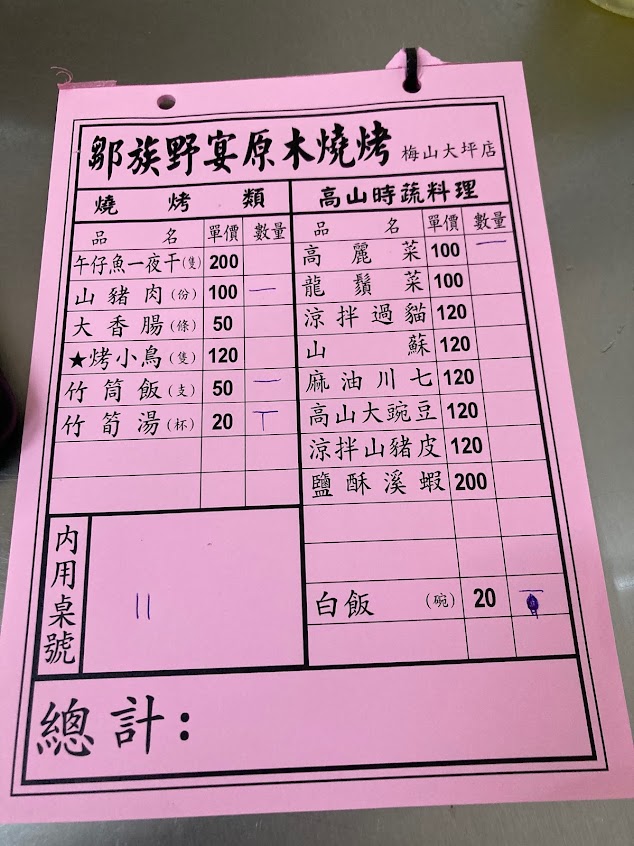 鄒族野宴原木燒烤 梅山大坪店
燒烤類
品名 單價 數量
午仔魚一夜干(隻) 200
山豬肉(份) 100 一
大香腸(條) 50
★烤小鳥(隻) 120
竹筒飯(支) 50 一
竹筍湯(杯) 20 丅
高山時蔬料理
品名 單價 數量
高麗菜 100 一
龍鬚菜 100
涼拌過貓 120
山蘇 120
麻油川七 120
高山大豌豆 120
涼拌山豬皮 120
鹽酥溪蝦 200
白飯(碗) 20 一
內用桌號
11
總計: